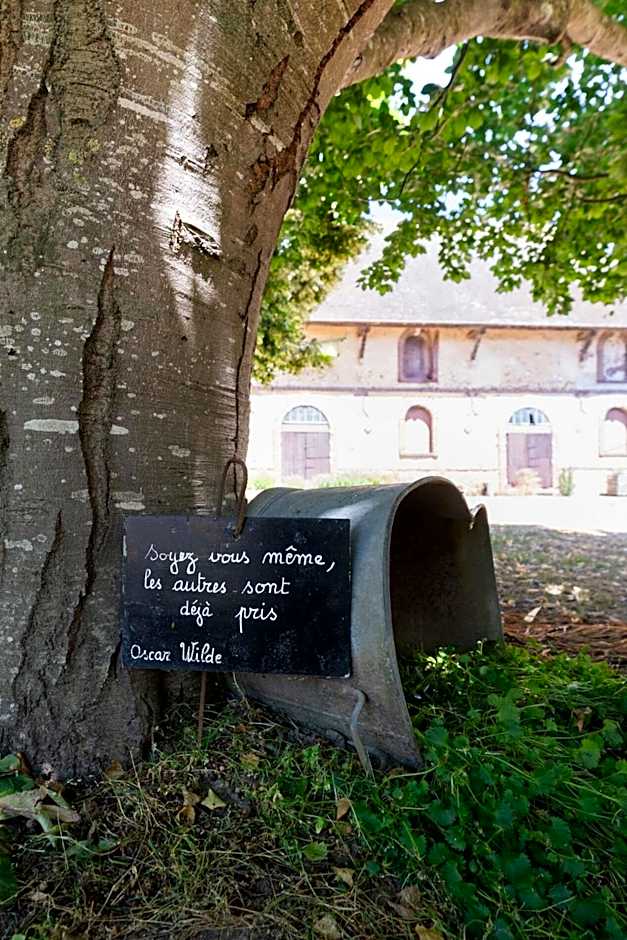 Soyez vous même,
les autres sont
déjà pris
Oscar Wilde